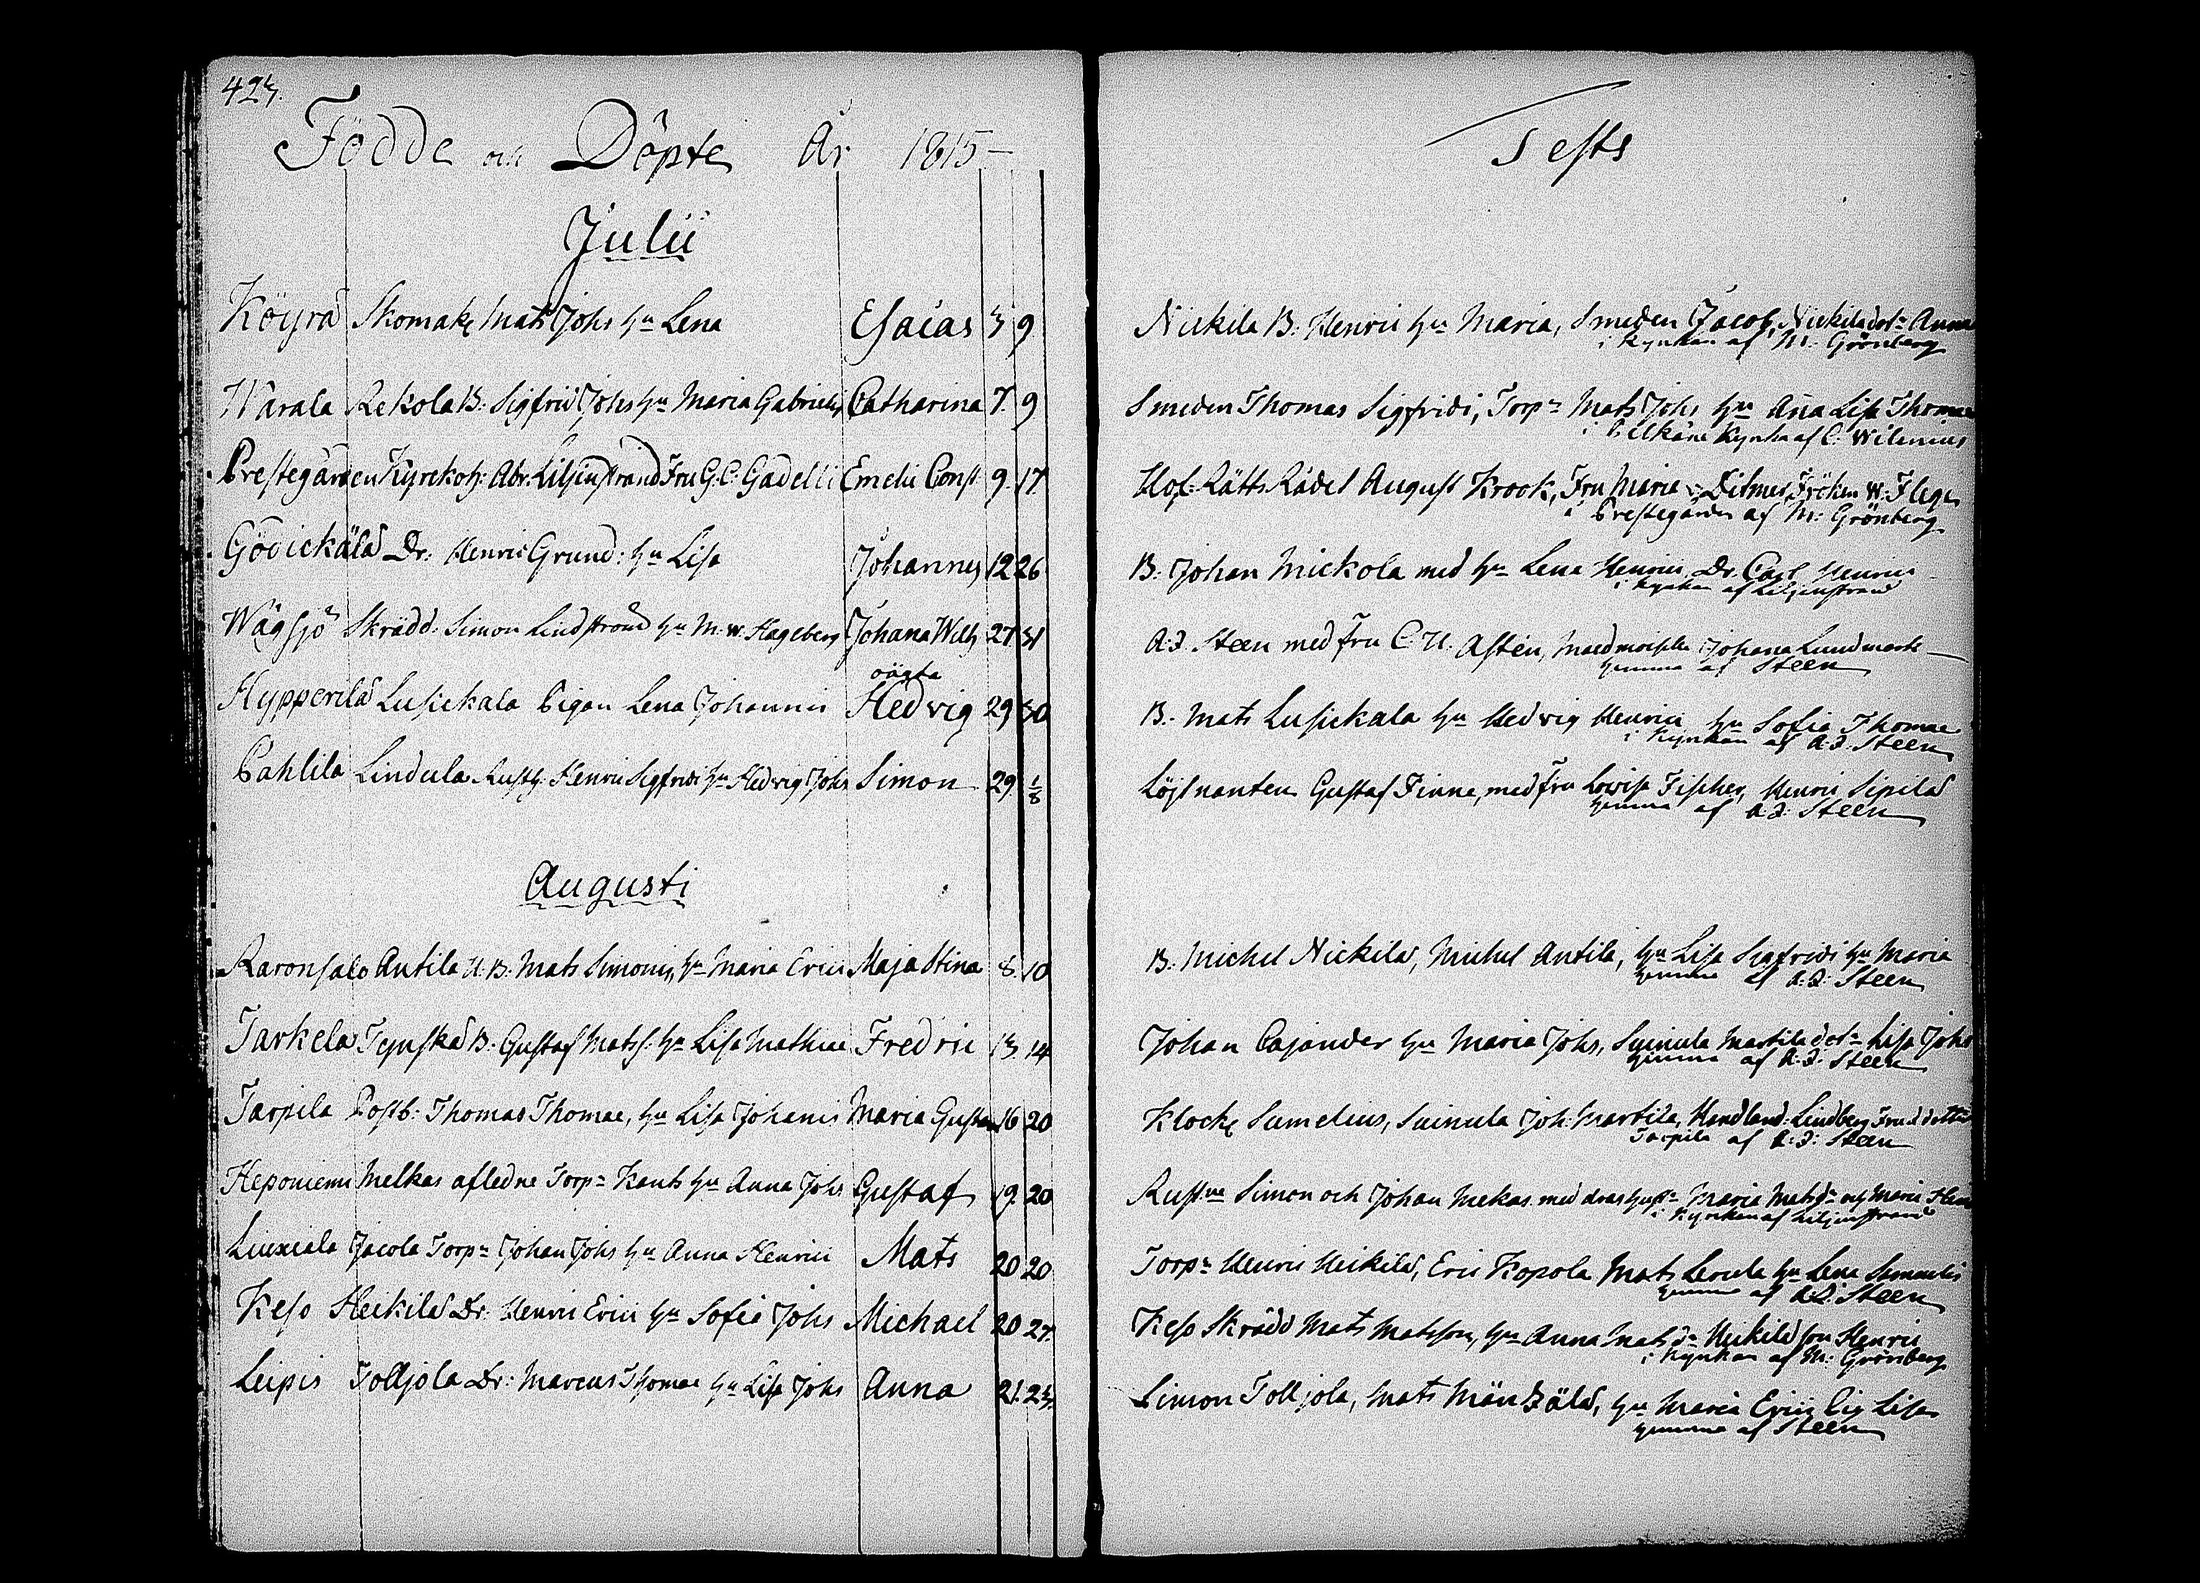 423.
Födde och Döpte År 1815 —
Julii
Köyrä Skomak Mats Johs Hu Lena Esaias 3 9
Warala Rekola B: Sigfrid Johs Hu Maria Gabrielis Catharina 7. 9
Prestegården Kyrkoh: Abr. Liljenstrand Fru G. C: Gadelli Emelie Const 9. 17
Gödickälä Dr: Henric Grund: Hu Lisa Johannes 12 26
Wägsjö Skrädd: Simon Lindström Hu M: W. Hageberg Johana Wilh 27 31
oägta
Hypperilä Lusickala Pigan Lena Johannis Hedvig 29 30
Pahlila Lindula Rusth: Henric Sigfridi Hu Hedvig Johs Simon 29. 1/8
Augusti
Raronsalo Antila U. B: Mats Simonis, Hu Maria Erici Maja Stina 8. 10
Tarkela B: Gustaf Mats: Hu Lisa Mathiae Fredric 13 14
Tarpila Postb: Thomas Thomae, Hu Lisa Johanis Maria Gustava 16 20
Heponiemi Melkas afledne Torp: Hu Anna Johs Gustaf 19. 20
Liuxiala Jacola Torp: Johan Johs Hu Anna Henrici Mats 20 20
Keso Heikilä Dr: Henric Erici Hu Sofia Johs Michael 20 27.
Leipis Tolljola Dr: Marcus Thomae Hu Lisa Johs Anna 21. 23.
Tests
Nickila B: Henric Hu Maria, Smeden Jacob, Nickila dotr Anna
i Kyrkan af M: Grönberg
Smeden Thomas Sigfridi, Torp: Mats Johs Hu Aña Lisa Thomae
i Pelkäne Kyrka af C: Wilenius
Hof Rätts Rådet August Krook, Fru Maria Ditmer, Fröken W.
i Prestegården af M: Grönberg
B: Johan Mickola med Hu Lena Henrici, Dr Carl Henric
i Kyrkan af Liljenstrand
A: J. Steen med Fru C. U. Asten, Mademoiselle Johana Lundmark —
Hemma af Steen
B: Mats Lusickala Hu Hedvig Henrici Hu Sofia Thomae
i Kyrkan af A: J: Steen
Löjtnanten Gustaf Finne, med Fru Lovisa Fischer, Henric Sipilä
Hemma af A: J: Steen
B: Michel Nickilä, Michel Antila, Hu Lisa Sigfridi Hu Maria
Hemma af A: J: Steen
Johan Cajander Hu Maria Johs, Suinula Martila dotr Lisa Johs
Hemma af A: J: Steen
Klock Sumelius, Suinula Joh: Martila, Handland: Lindberg Fru
Tarpila af A: J: Steen
Simon och Johan Mekas med Maria Matsdr och Maria
i Kyrkan af Liljenstrand
Torp: Henric Heikilä, Eric Kopola Mats Hu Lena Samuelis
Hemma af A: J: Steen
Keso Skrädd Mats Matsson, Hu Anna Mats dr Heikilä son Henric
i Kyrkan af M: Grönberg
Simon Tolljola, Mats Hu Maria Erici Pig Lisa
Hemma af Steen